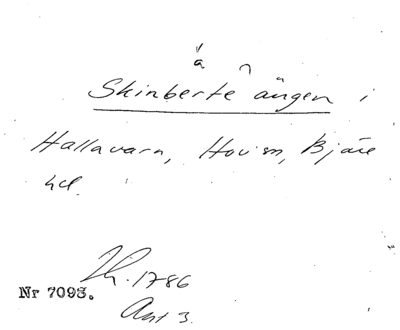 å
Skinberte ängen i
Hallavara, Hov sn, Bjäre
hd.
Nr 7093.
1786
Akt 3.